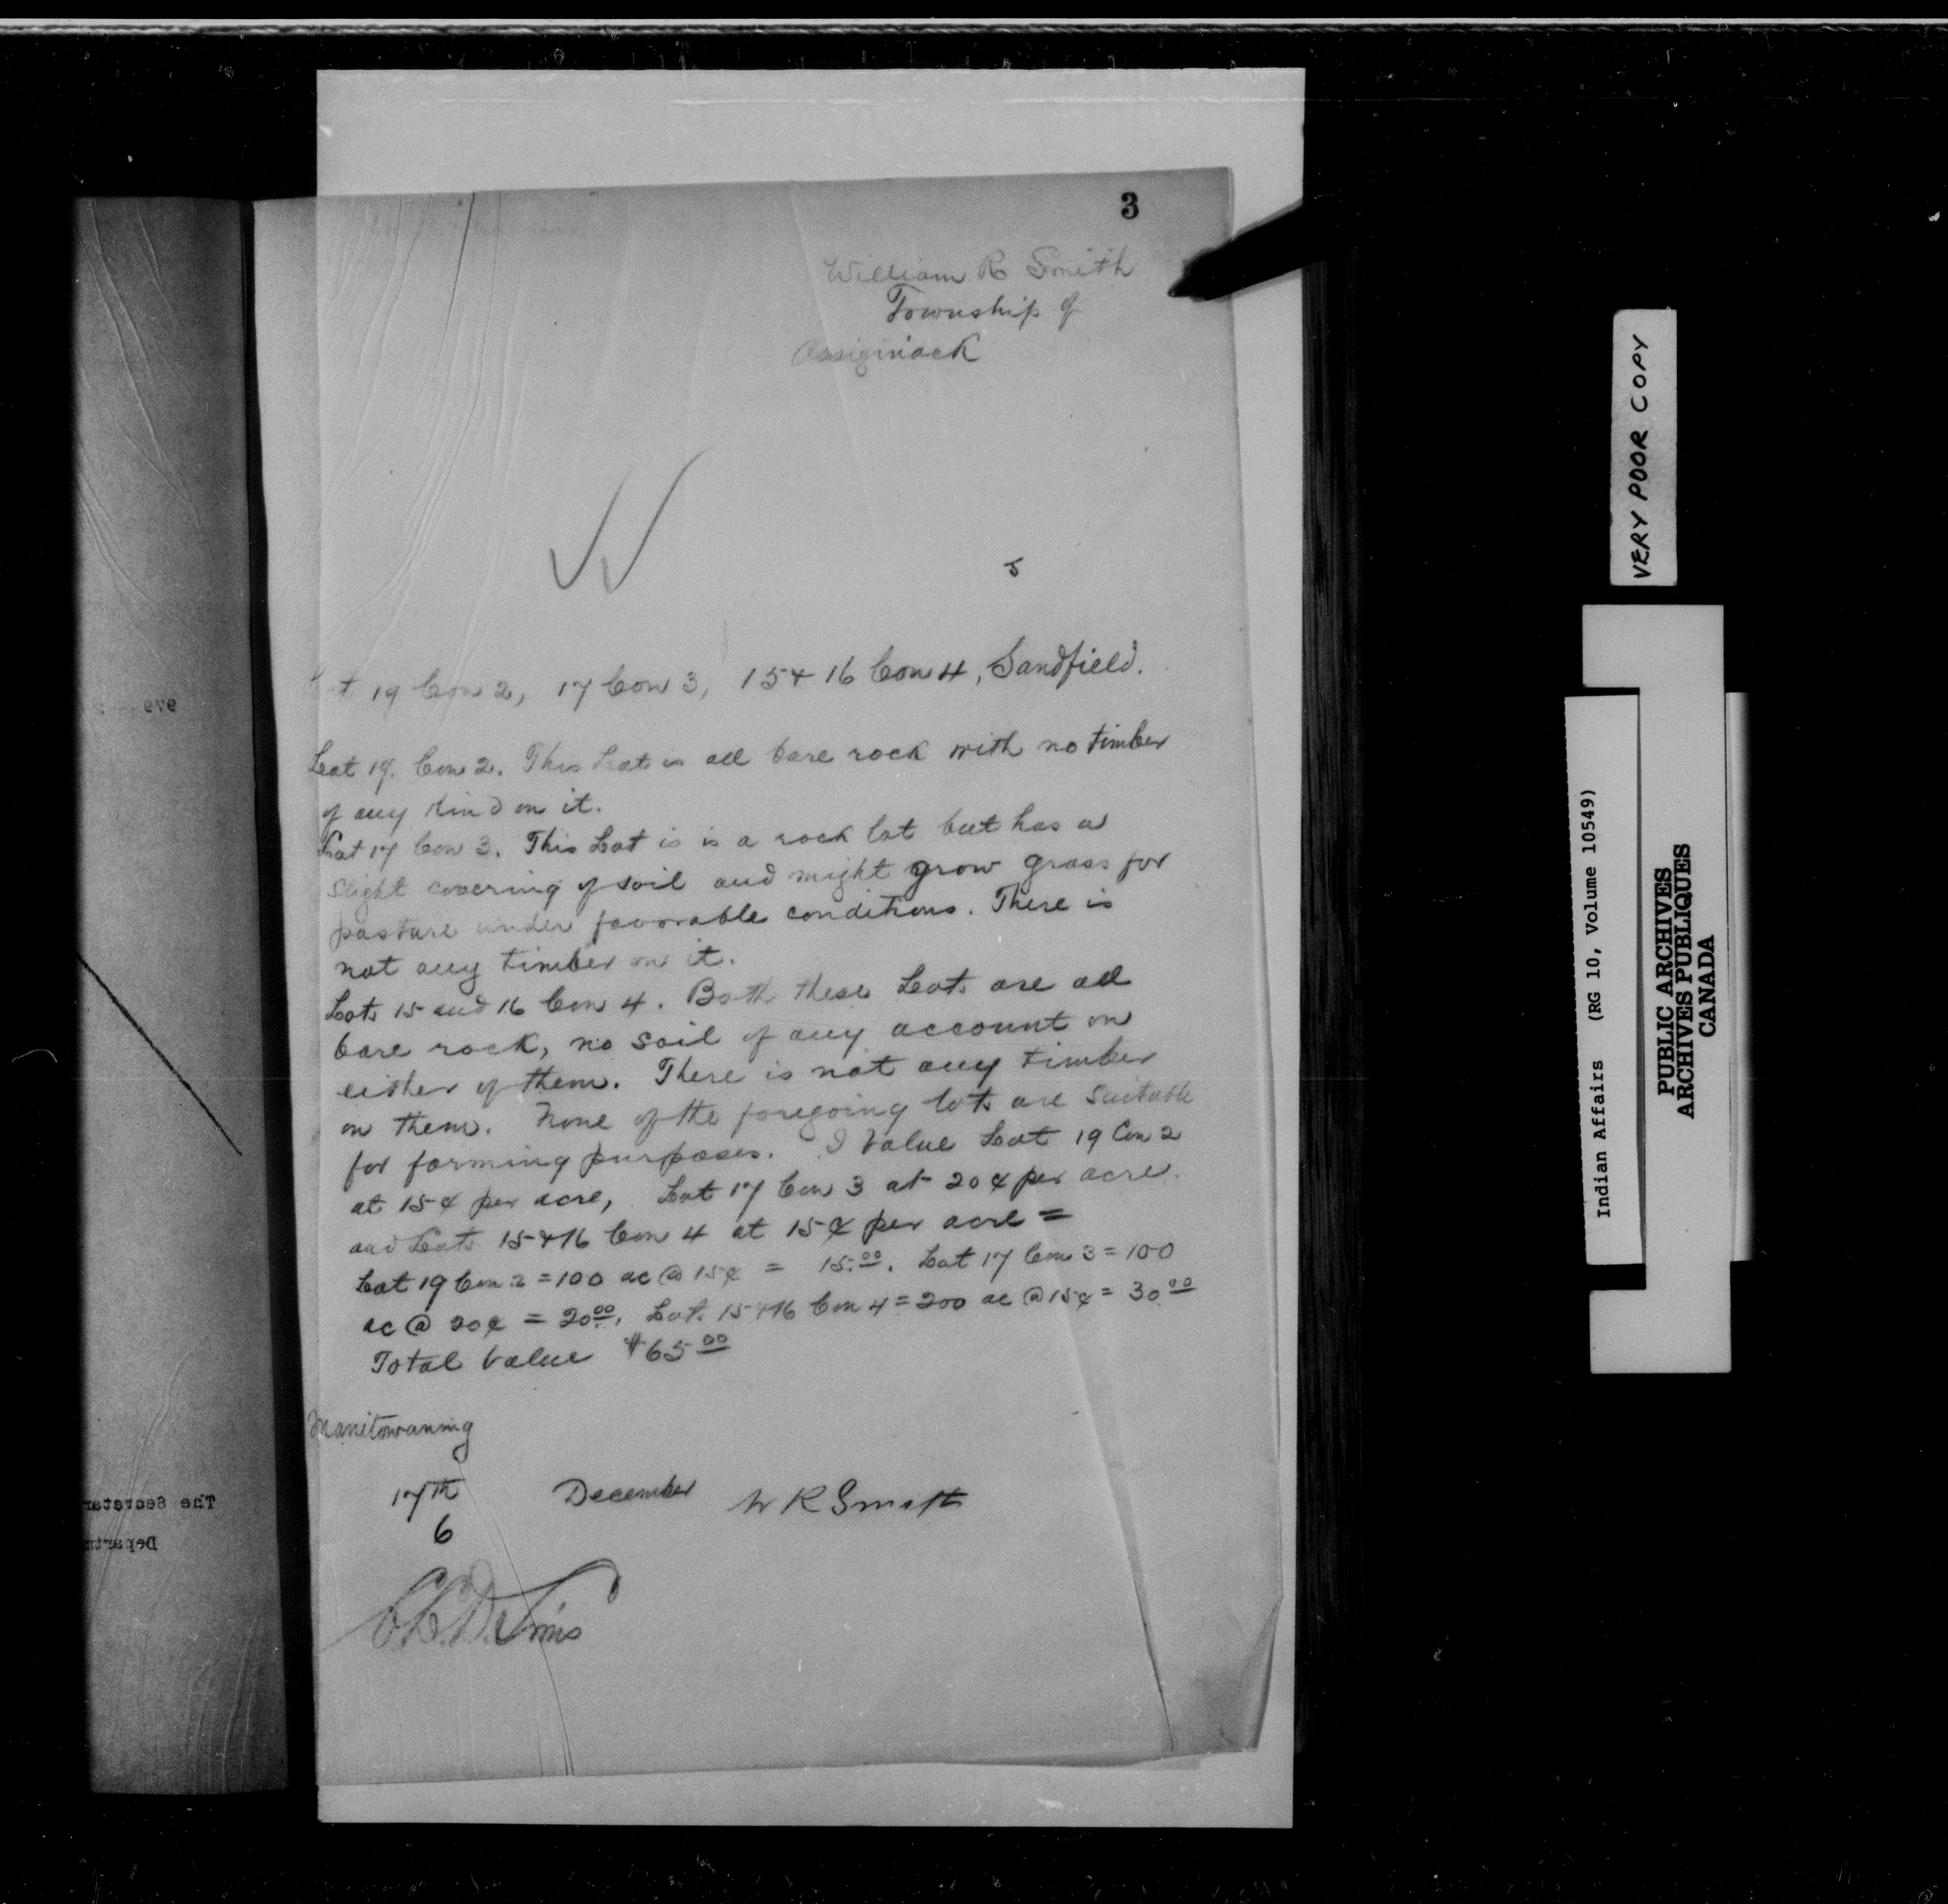 3
William R Smith
Township of
Assiginack
5
Lot 19 Con 2, 17 Con 3, 15 & 16 Con 4, Sandfield.
Lot 19. Con 2. This Lot is all bare rock with no timber
of any kind on it.
Lot 17 Con 3. This Lot is is a rock lot but has a
slight covering of soil and might grow grass for
pasture under favorable conditions. There is
not any timber on it.
Lots 15 and 16 Con 4. Both these Lots are all
bare rock, no soil of any account on
either of them. There is not any timber
on them. None of the foregoing lots are suitable
for farming purposes. I value Lot 19 Con 2
at 15¢ per acre, Lot 17 Con 3 at 20¢ per acre.
and Lots 15 & 16 Con 4 at 15¢ per acre =
Lot 19 Con 2 = 100 ac @ 15¢ = 15.00. Lot 17 Con 3 = 100
ac @ 20¢ = 20.00. Lots 15 & 16 Con 4 = 200 ac @ 15¢ = 30.00
Total Value $65.00
Manitowaning
17th December W R Smith
6
eve
The Secretar
Departm
VERY POOR COPY
Indian Affairs (RG 10, Volume 10549)
PUBLIC ARCHIVES
ARCHIVES PUBLIQUES
CANADA